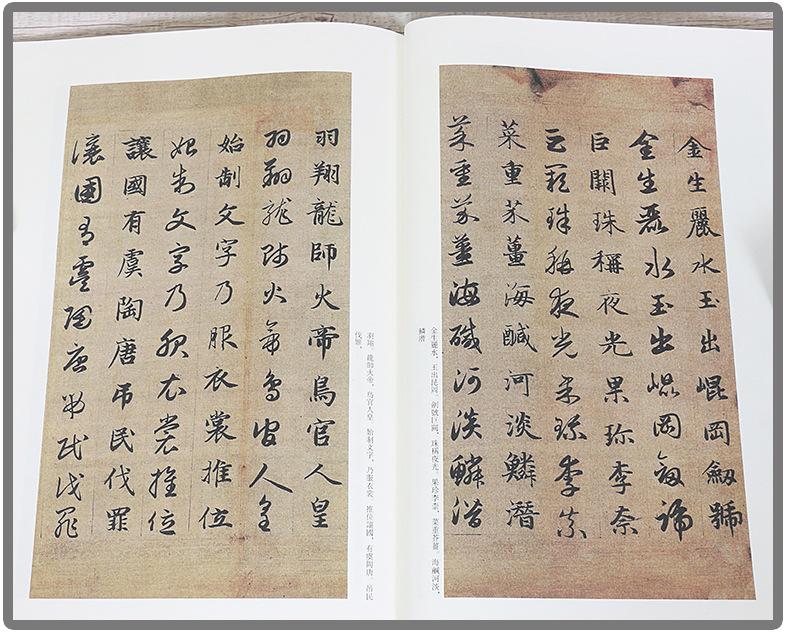 金生麗水玉出崐岡劔號
金生麗水玉出崐岡劔號
巨闕珠稱夜光果珍李柰
巨闕珠稱夜光果珍李柰
菜重芥薑海醎河淡鱗潛
菜重芥薑海醎河淡鱗潛
金生麗水，玉出昆岡。劍號巨闕，珠稱夜光。果珍李柰，菜重芥薑。海鹹河淡，
鱗潛
羽翔龍師火帝鳥官人皇
羽翔龍師火帝鳥官人皇
始制文字乃服衣裳推位
始制文字乃服衣裳推位
讓國有虞陶唐吊民伐罪
讓國有虞陶唐吊民伐罪
羽翔。龍師火帝，鳥官人皇。始制文字，乃服衣裳。推位讓國，有虞陶唐。吊民
伐罪，